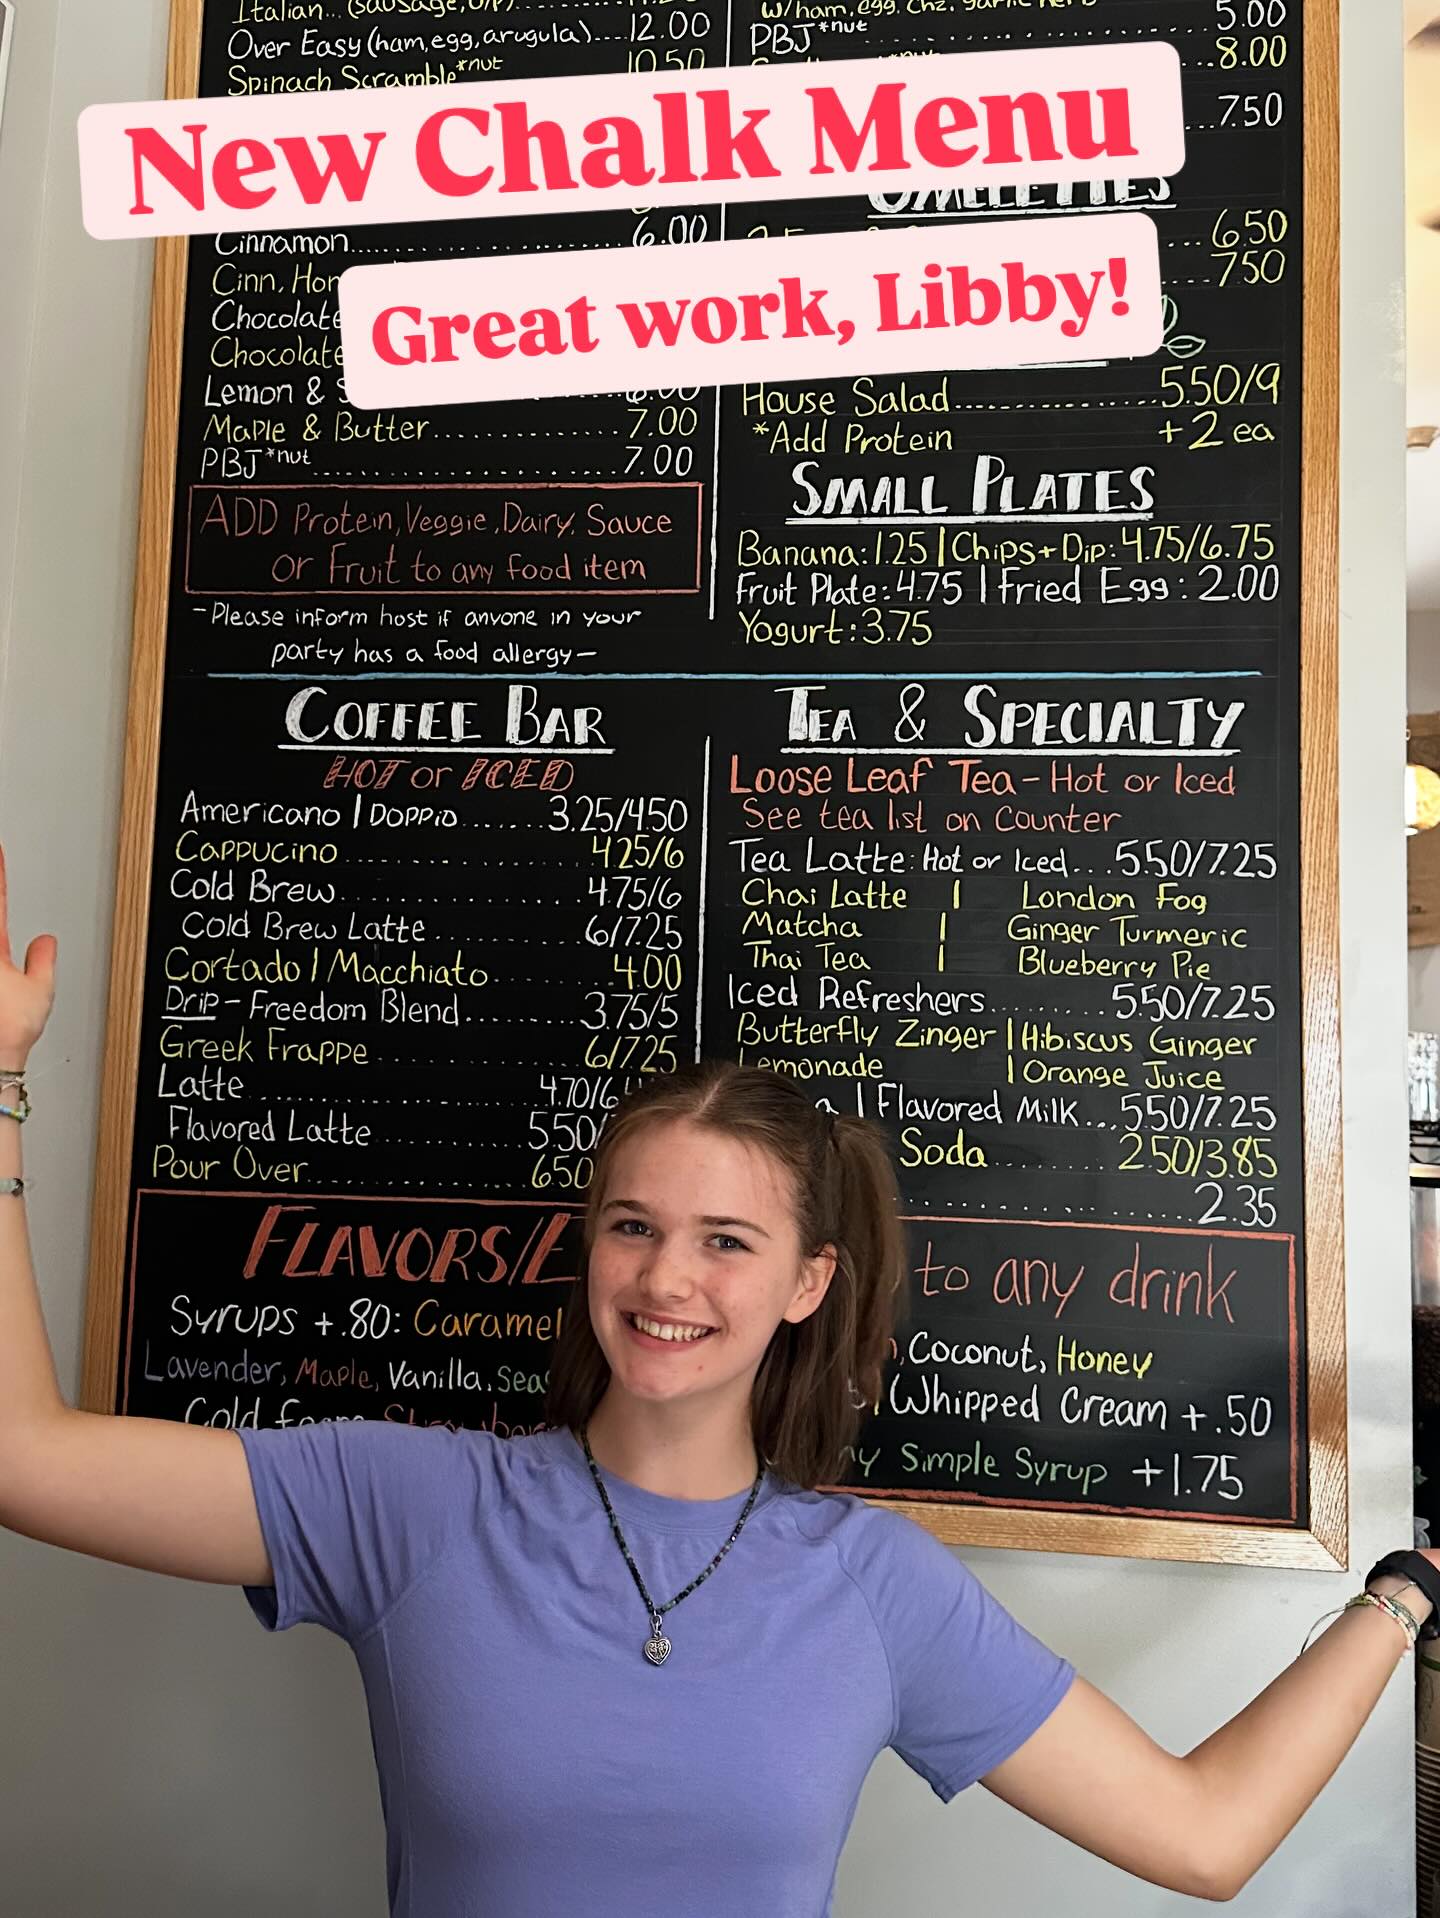 Italian... (sausage,
Over Easy (ham, egg, arugula)....12.00
Spinach Scramble *nut 10.50
w/ham, egg, chz, garlic herb 5.00
PBJ *nut
..8.00
...7.50
New Chalk Menu
Great work, Libby!
Cinnamon 6.00
Cinn,
Chocolate
Chocolate
Lemon & 
Maple & Butter 7.00
PBJ *nut 7.00
ADD Protein, Veggie, Dairy, Sauce
or Fruit to any food item
-Please inform host if anyone in your
party has a food allergy-
OMELETTES
6.50
7.50
House Salad 5.50/9
*Add Protein +2 ea
SMALL PLATES
Banana: 1.25 | Chips + Dip: 4.75/6.75
Fruit Plate: 4.75 | Fried Egg: 2.00
Yogurt: 3.75
COFFEE BAR
HOT or ICED
Americano | DOPPIO 3.25/4.50
Cappucino 4.25/6
Cold Brew 4.75/6
Cold Brew Latte 6/7.25
Cortado | Macchiato 4.00
Drip - Freedom Blend 3.75/5
Greek Frappe 6/7.25
Latte 4.70/6
Flavored Latte 5.50/
Pour Over 6.50
TEA & SPECIALTY
Loose Leaf Tea - Hot or Iced
See tea list on counter
Tea Latte: Hot or Iced...5.50/7.25
Chai Latte | London Fog
Matcha | Ginger Turmeric
Thai Tea | Blueberry Pie
Iced Refreshers 5.50/7.25
Butterfly Zinger | Hibiscus Ginger
Lemonade | Orange Juice
| Flavored Milk...5.50/7.25
Soda 2.50/3.85
2.35
FLAVORS/ to any drink
Syrups +.80: Caramel Coconut, Honey
Lavender, Maple, Vanilla, Whipped Cream +.50
Cold Foam Simple Syrup +1.75